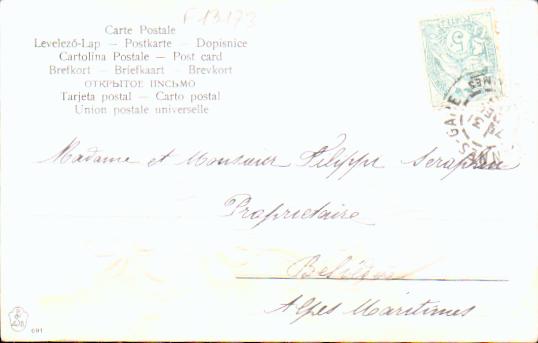 F 13173
Carte Postale
Levelező-Lap — Postkarte — Dopisnice
Cartolina Postale — Post card
Brefkort — Briefkaart — Brevkort
ОТКРЫТОЕ ПИСЬМО
Tarjeta postal — Carto postal
Union postale universelle
5
Madame et Monsieur Filippi
Propriétaire
Alpes Maritimes
691